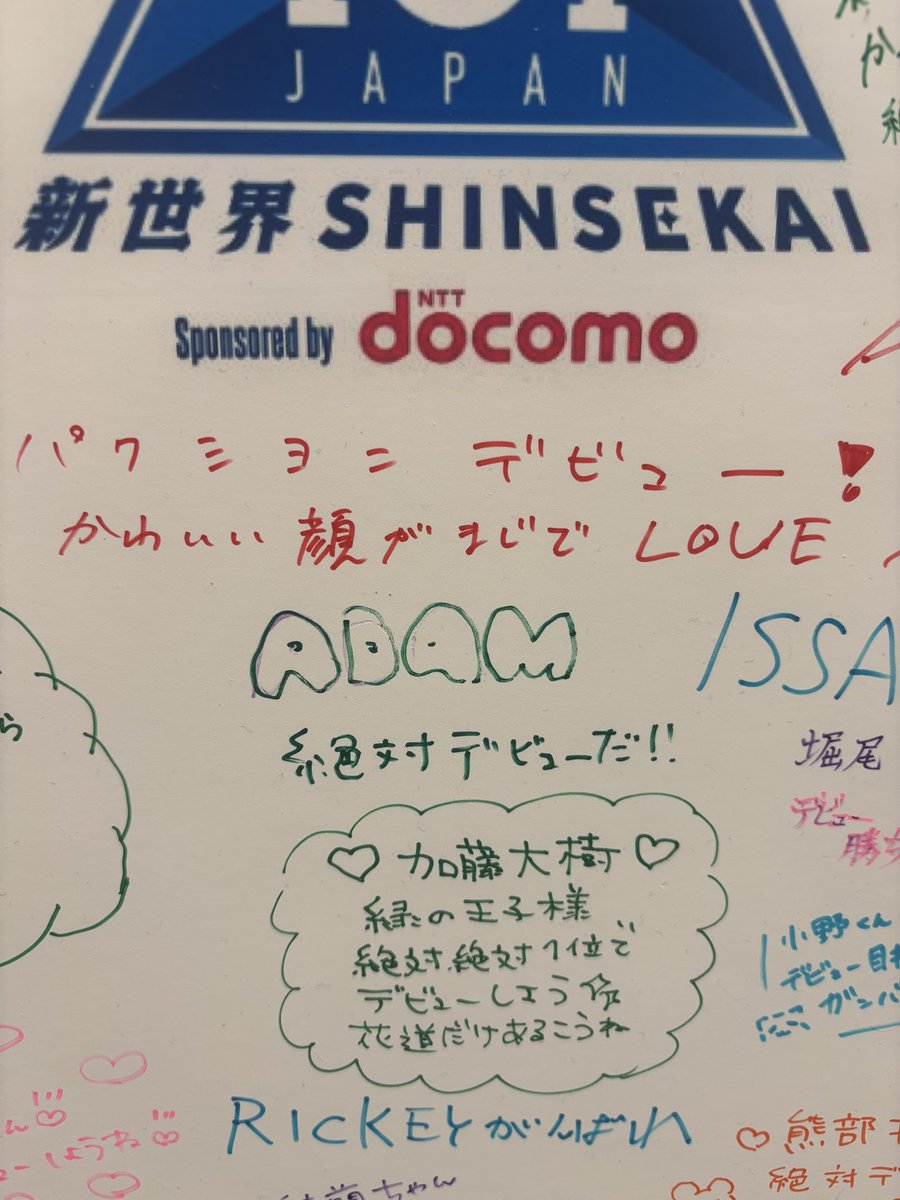 JAPAN
新世界 SHINSEKAI
Sponsored by NTT docomo
パクシヨニ デビュー!
かわいい顔がまじで LOVE
ADAM
ISSA
絶対デビューだ!!
堀尾
デビュー
勝ち
加藤大樹
緑の王子様
絶対絶対1位で
デビューしよう
花道だけあるこうね
小野くん
デビュー目
ガンバ
RICKEYがんばれ
ューしようね
熊部
絶対デ
ちゃん